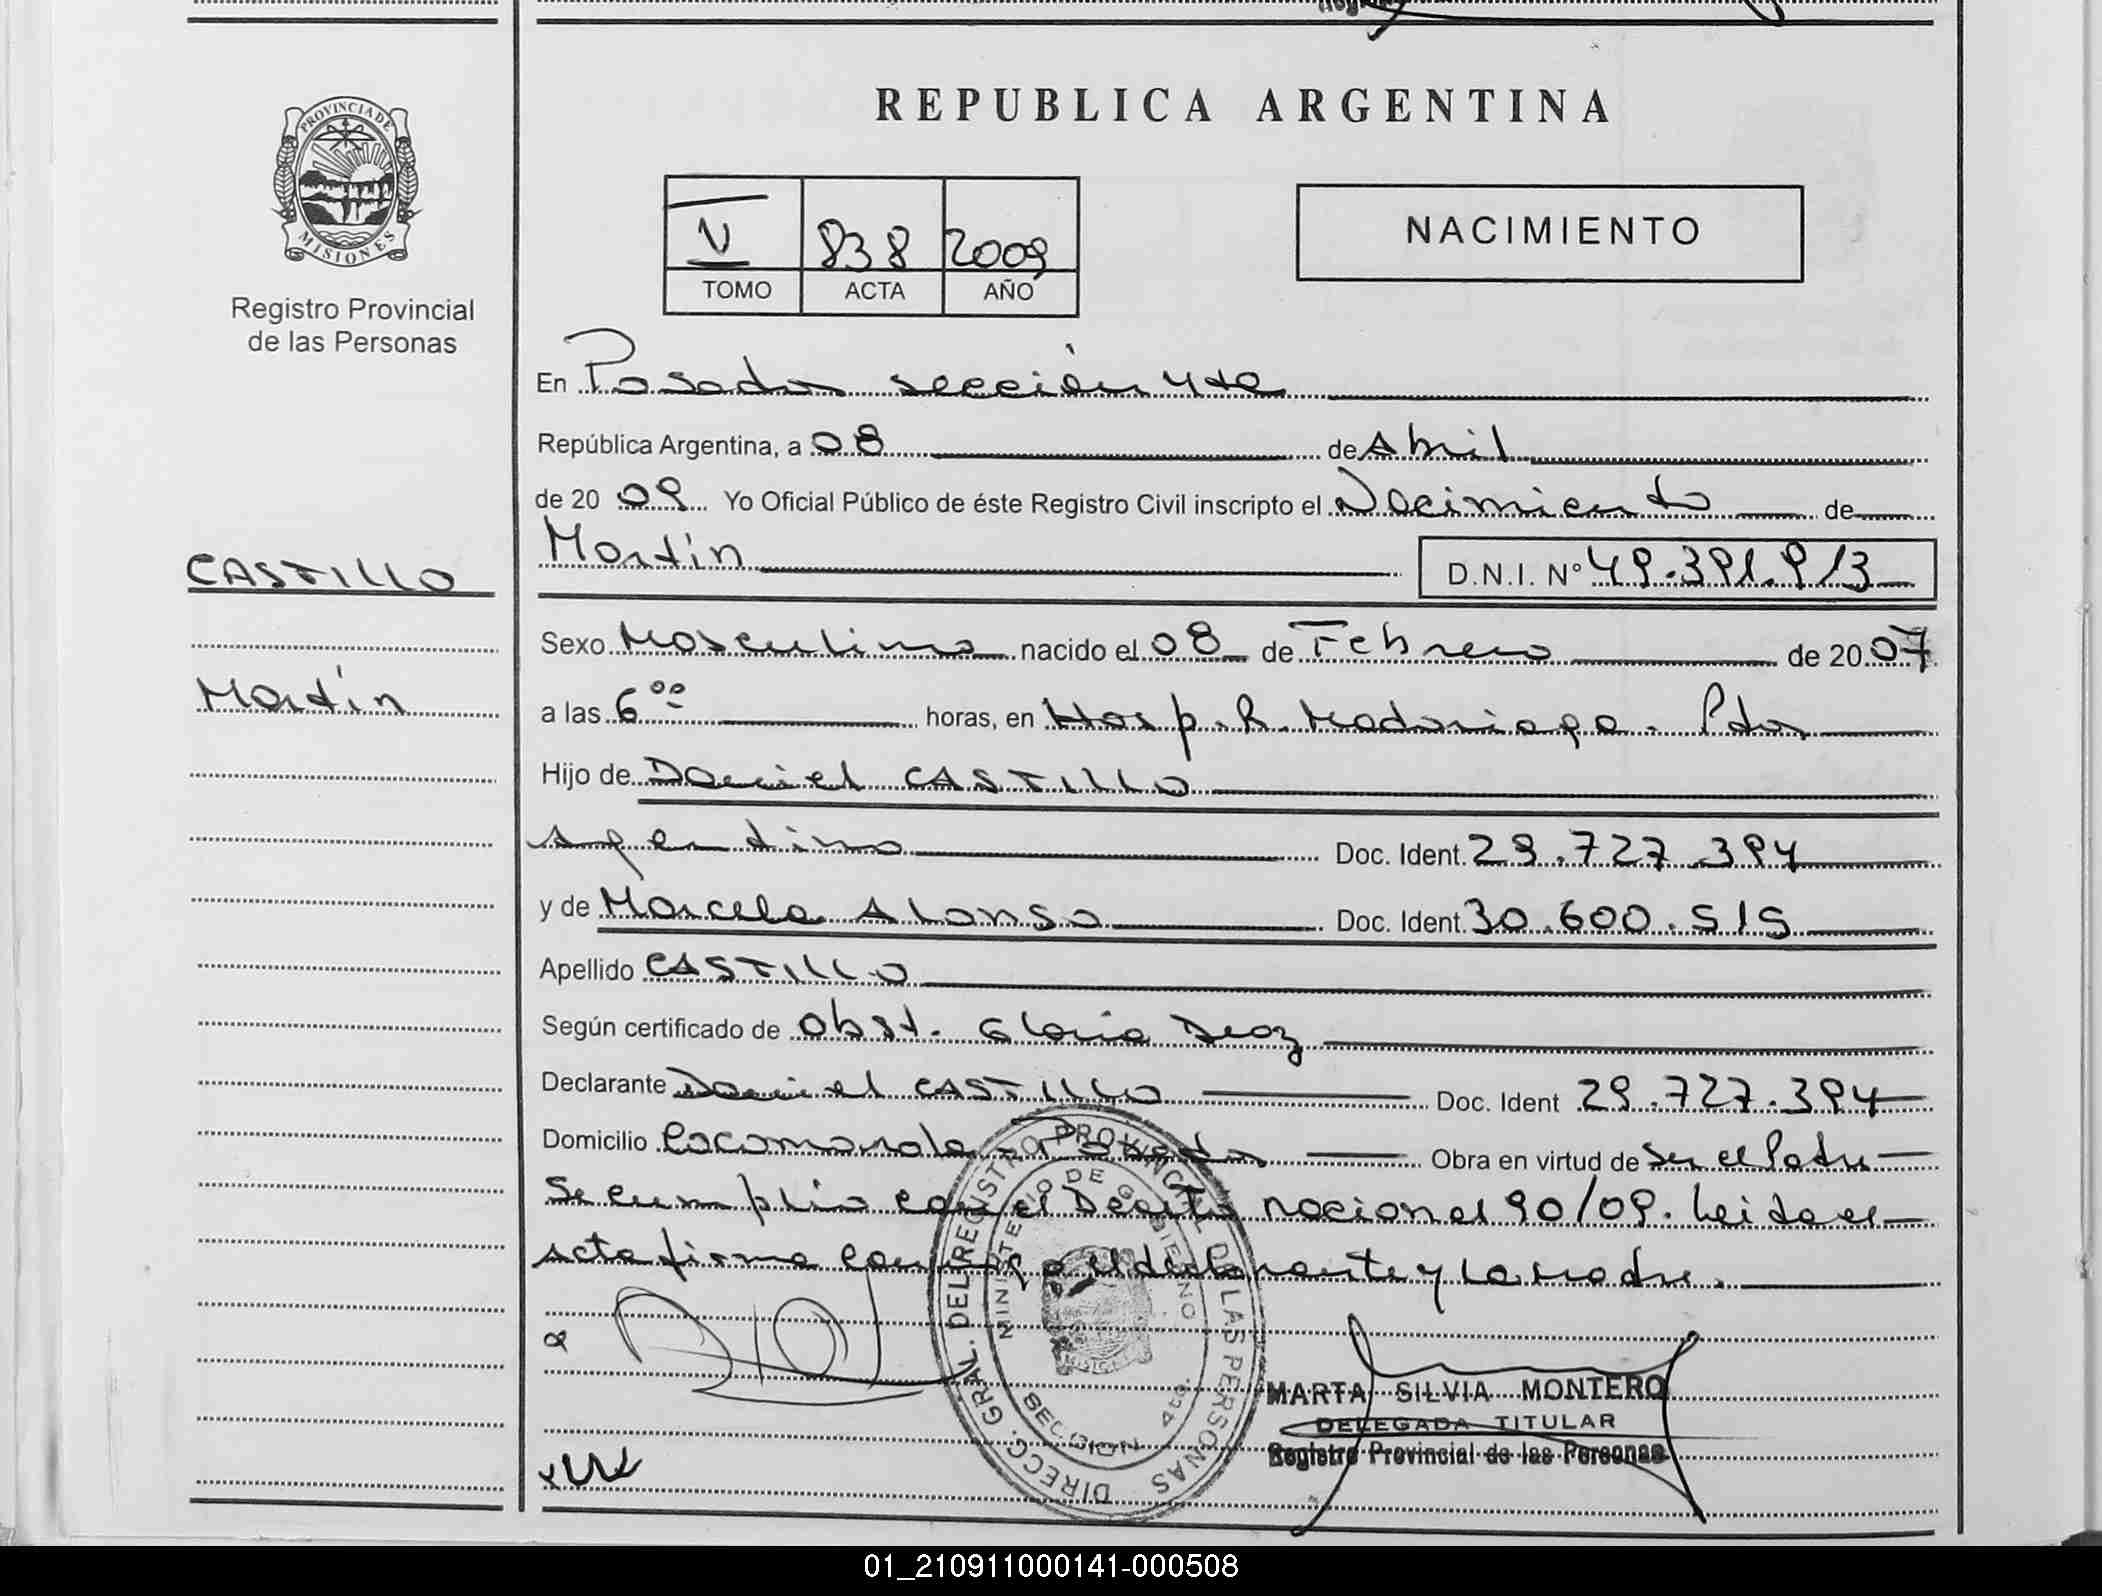 REPUBLICA ARGENTINA
PROVINCIA DE
MISIONES
Registro Provincial
de las Personas
V 838 2009
TOMO ACTA AÑO
NACIMIENTO
En Posadas sección 4ta
República Argentina, a 08 de Abril
de 20 09 Yo Oficial Público de éste Registro Civil inscripto el Nacimiento de
Martín D.N.I. Nº 49.391.913
CASTILLO
Martín
Sexo Masculino nacido el 08 de Febrero de 2007
a las 6:00 horas, en Hosp. R. Madariaga. Pdas
Hijo de Daniel CASTILLO
Argentino Doc. Ident. 29.727.394
y de Marcela Alonso Doc. Ident. 30.600.515
Apellido CASTILLO
Según certificado de Obst. Gloria Deoz
Declarante Daniel CASTILLO Doc. Ident 29.727.394
Domicilio Cocomarola - Posadas Obra en virtud de ser el Padre
Se cumplio con el Decreto nacional 90/09. Leida el
acta firma conmigo el declarante y la madre.
DIRECC. GRAL. DEL REGISTRO PROVINCIAL DE LAS PERSONAS
MINISTERIO DE GOBIERNO
SECCION 4ta.
MARTA SILVIA MONTERO
DELEGADA TITULAR
Registro Provincial de las Personas
01_210911000141-000508